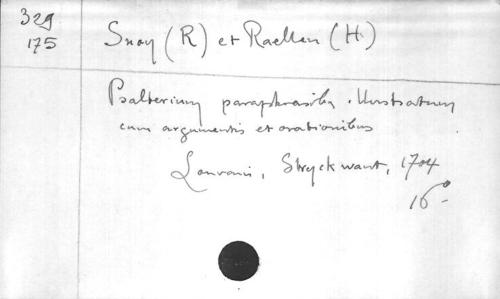 329
175
Snoy (R) et Raellen (H.)
Psalterium paraphrasibs. illustratum
cum argumentis et orationibus
Lovanii, Stryckwant, 1704
16°